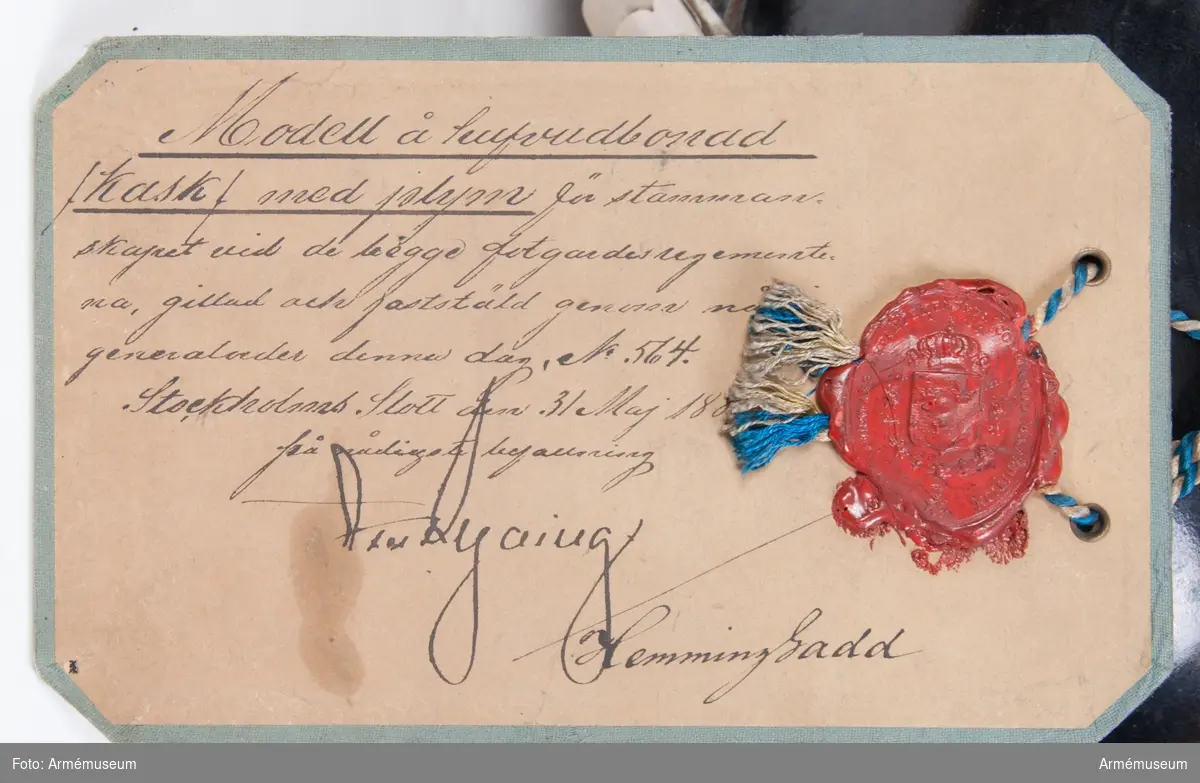 Modell å hufvudbonad
/Kask/ med plym för stamman-
skapet vid de bägge fotgardesregemente-
na, gillad och fastställd genom
generalorder denna dag, No 564.
Stockholms Slott den 31 Maj
På nådigste befallning
Hemming Gadd
Foto: Armémuseum
Armémuseum